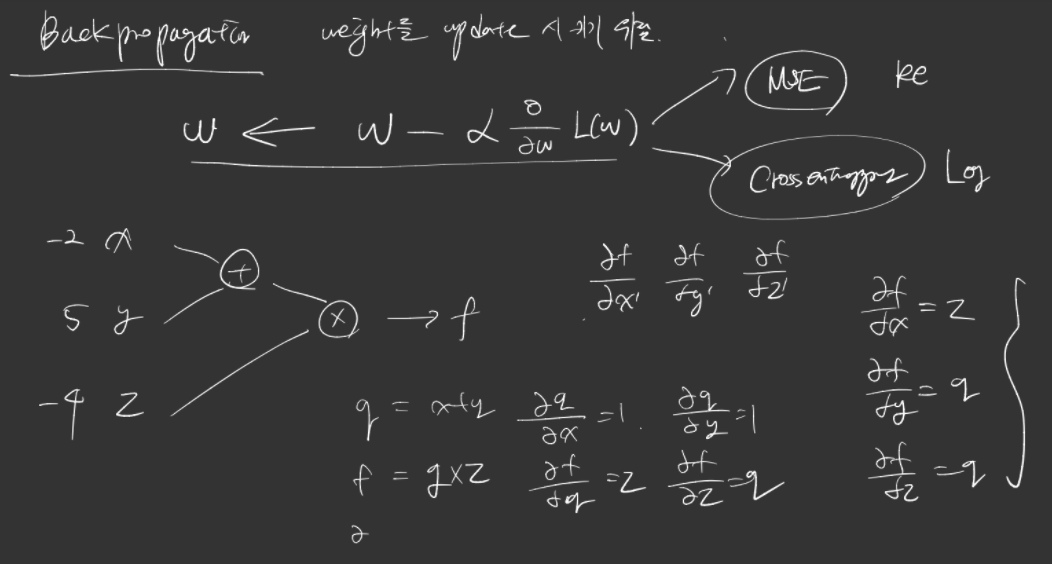 Backpropagation weight를 update 시키기 위함.
w ← w - α ∂/∂w L(w)
MSE Re
Cross entropy Log
-2 x
+
5 y
× → f
-4 z
∂f/∂x, ∂f/∂y, ∂f/∂z
∂f/∂x = z
∂f/∂y = q
∂f/∂z = q
q = x+y ∂q/∂x = 1. ∂q/∂y = 1
f = q×z ∂f/∂q = z ∂f/∂z = q
∂